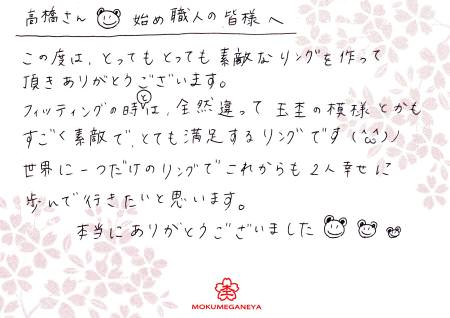 高橋さん 始め 職人の 皆様へ
この度は、とってもとっても 素敵なリングを作って
頂きありがとうございます。
フィッティングの時とは、全然違って 玉杢の模様とかも
すごく素敵で、とても満足するリングです(^ω^)ノ
世界に一つだけのリングで これからも 2人 幸せに
歩んで行きたいと思います。
本当にありがとうございました
MOKUMEGANEYA